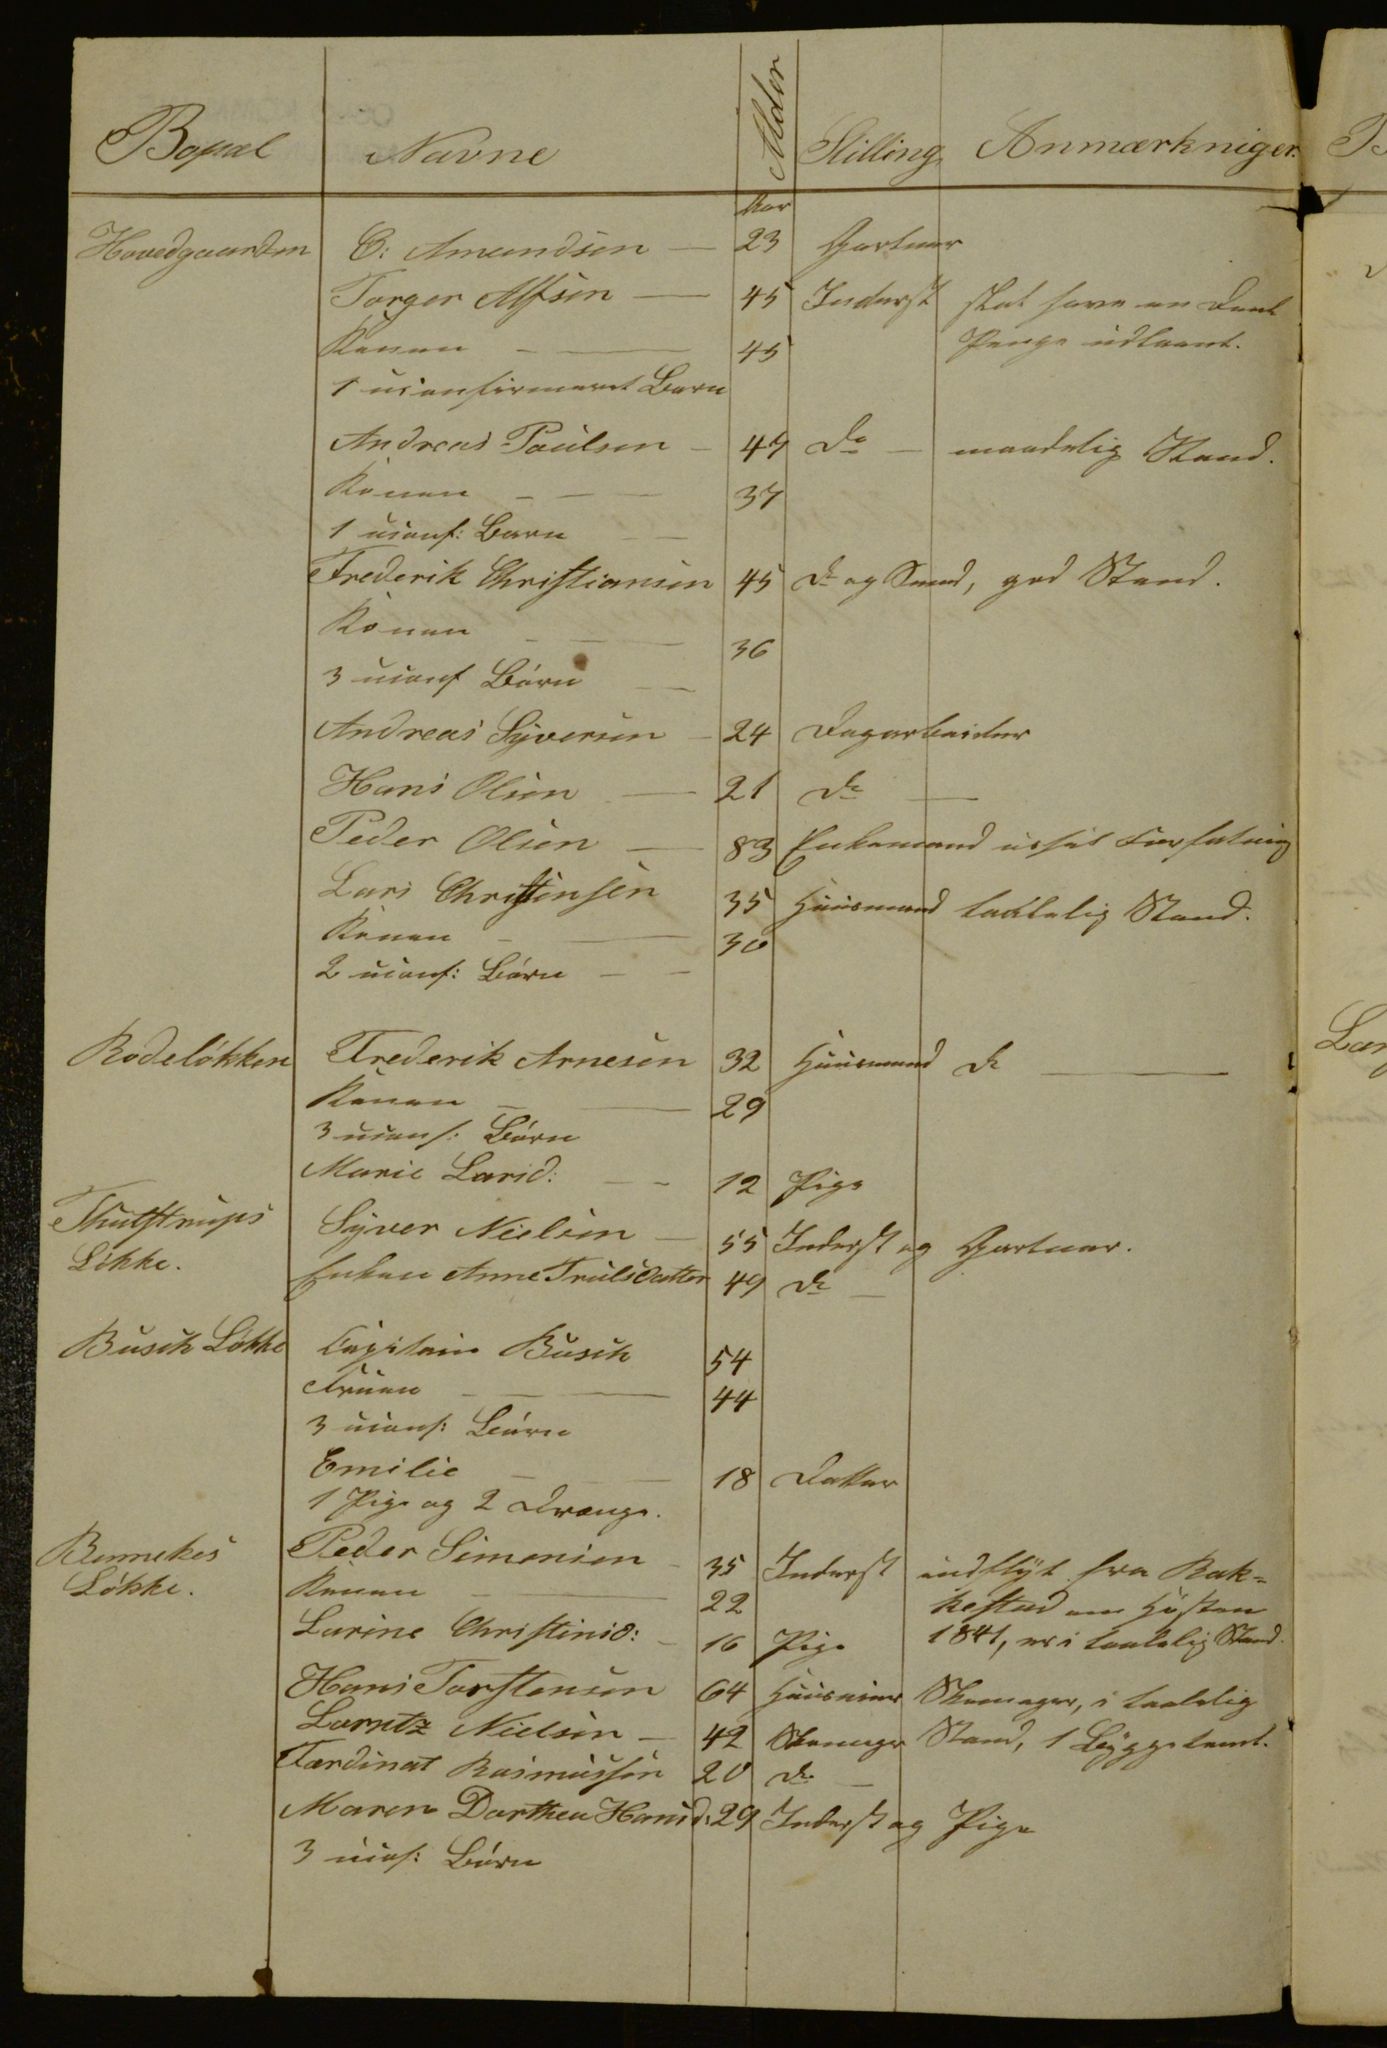 Bopæl Navne Alder Stilling Anmærkniger.
Aar
Hovedgaarden C: Amundsen — 23 Gartner
Torger Alfsen — 45 Inderst skal have en Deel
Konen — 45 Penge udlaant.
1 uconfirmeret Barn
Andreas Paulsen — 47 Do — maadelig Stand.
Konen — 37
1 uconf: Barn
Frederik Christiansen 45 Do og Smed, god Stand.
Konen — 36
3 uconf Börn
Andreas Syversen — 24 Dagarbeider
Hans Olsen — 21 Do —
Peder Olsen — 83 Enkemand ussel Forfatning
Lars Christensen 35 Huusmand taalelig Stand.
Konen — 30
2 uconf: Börn
Rodelökken Frederik Arnesen 32 Huusmand Do —
Konen — 29
3 uconf: Börn
Marie Larsd: 12 Pige
Thulstrups Syver Nielsen — 55 Inderst og Gartner.
Lökke. Enken Anne Trulsdatter 49 Do —
Busch Lökke Capitain Busch 54
Fruen — 44
3 uconf: Börn
Emilie — 18 Datter
1 Pige og 2 Drenge.
Bennekes Peder Simensen — 35 Inderst indflyt fra Bak=
Lökke. Konen — 22 kestad om Hösten
Larine Christinsd: — 16 Pige 1841, er i taalelig Stand.
Hans Torstensen 64 Huuseier Skomager, i taalelig
Larntz Nielsen — 42 Skomager Stand, 1 Byggetomt.
Færdinat Rasmussen 20 Do —
Maren Dorthea Hansd: 29 Inderst og Pige
3 uconf: Börn